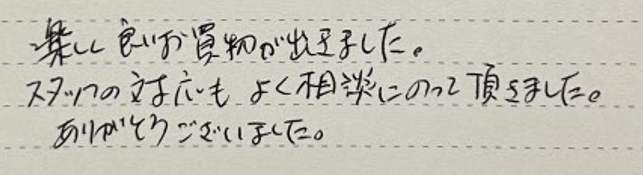 楽しく良いお買物が出来ました。
スタッフの対応もよく相談にのって頂きました。
ありがとうございました。